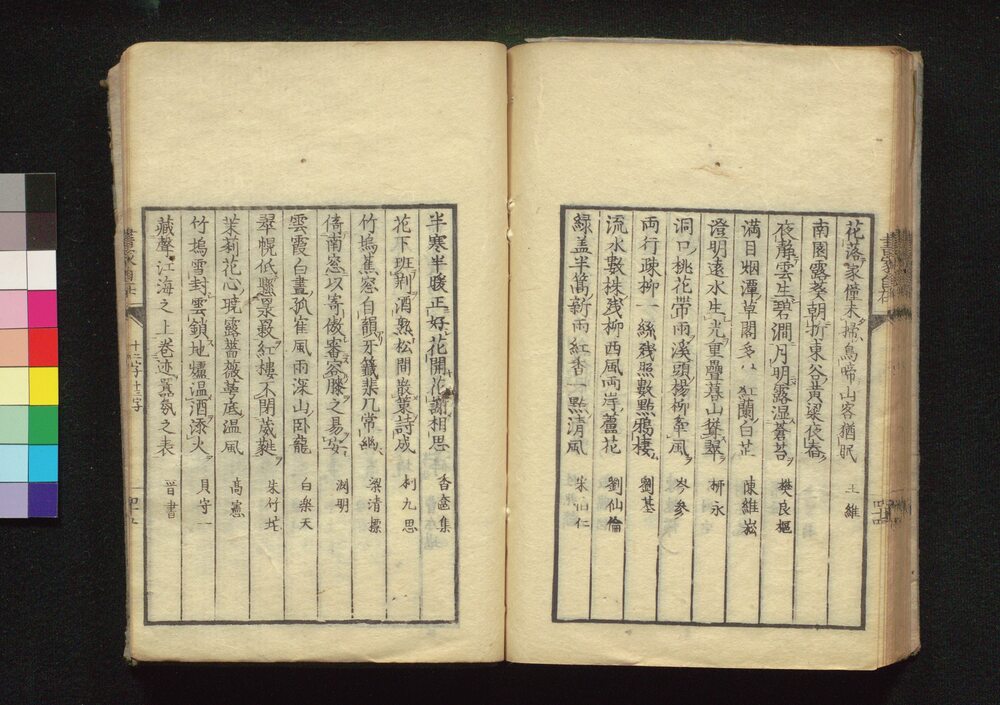 花落家僮未掃鳥啼山客猶眠 王維
南園露葵朝折東谷黄粱夜舂
夜静雲生碧澗月明露湿蒼苔 樊良樞
満目烟潭草閣多 紅蘭白芷 陳維崧
澄明遠水生光重疊暮山聳翠 栁永
洞口桃花帯雨溪頭楊柳牽風 岑参
両行疎柳一絲残照數點鴉棲 劉基
流水數株残柳西風両岸蘆花 劉仙倫
緑盖半篙新雨紅香一點清風 朱伯仁
半寒半暖正好花開花謝相思 香奩集
花下班荆酒熟松間散葉詩成 刺九思
竹塢蕉窓自韻牙籤棐几常幽 梁清標
倚南窓以寄傲審容膝之易安 淵明
雲霞白晝孤隺風雨深山卧龍 白楽天
翠幌低懸罘罳紅樓不閉葳蕤 朱竹垞
茉莉花心暁露薔薇葉底温風 高憲
竹塢雪封雲鎖地爐温酒添火 貝守一
藏聲江海之上卷迹囂氛之表 晋書
十二字十三字